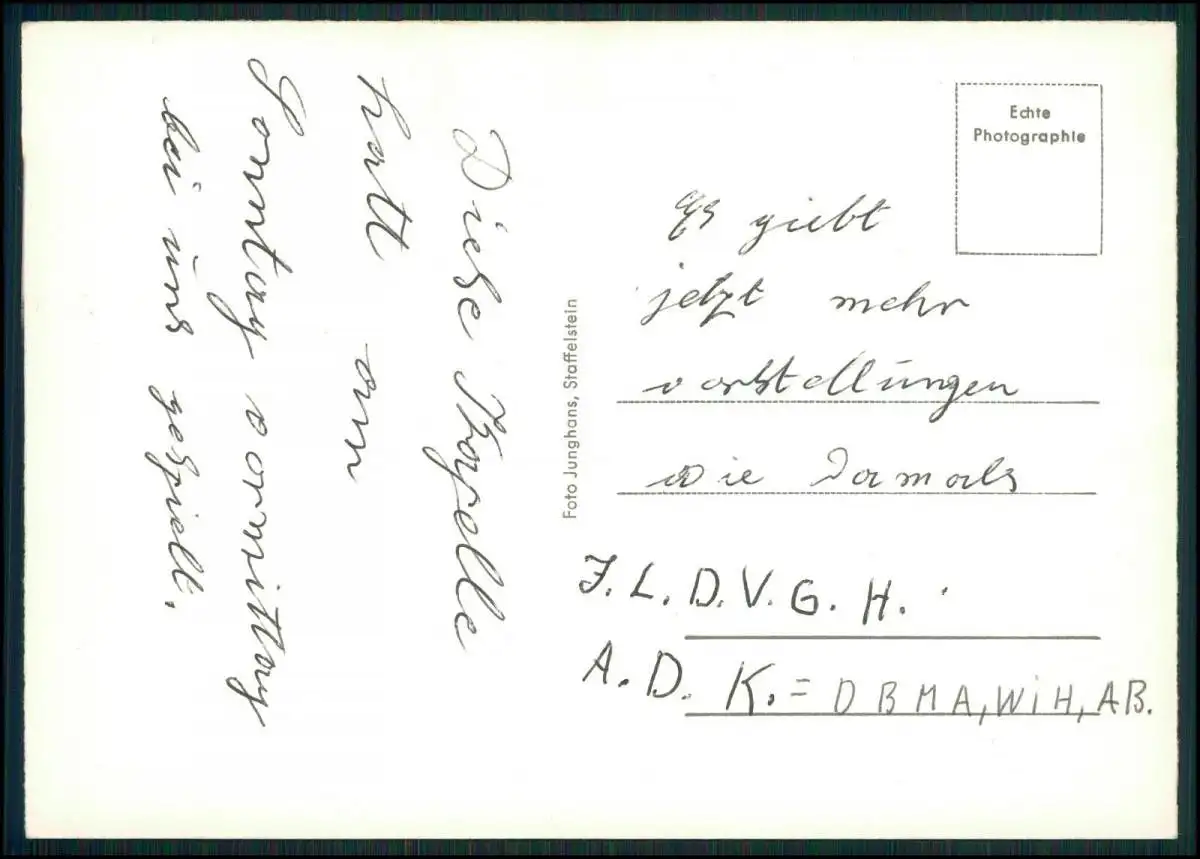 Diese Kapelle
hatt am
Sonntag vormittag
bei uns gespielt.
Foto Junghans, Staffelstein
Echte
Photographie
Es giebt
jetzt mehr
vorstellungen
wie Damals
J. L. D. V. G. H.
A. D. K. = D B M A, WiH, AB.